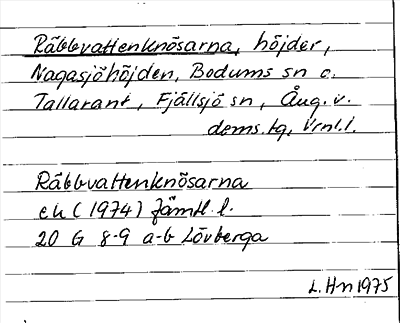 Räbbvattenknösarna, höjder,
Nagasjöhöjden, Bodums sn o.
Tallarant, Fjällsjö sn, Ång. v.
dems. tg, Vrnl. l.
Räbbvattenknösarna
ek (1974) Jämtl. l.
20 G 8-9 a-b Lövberga
L. Hn 1975